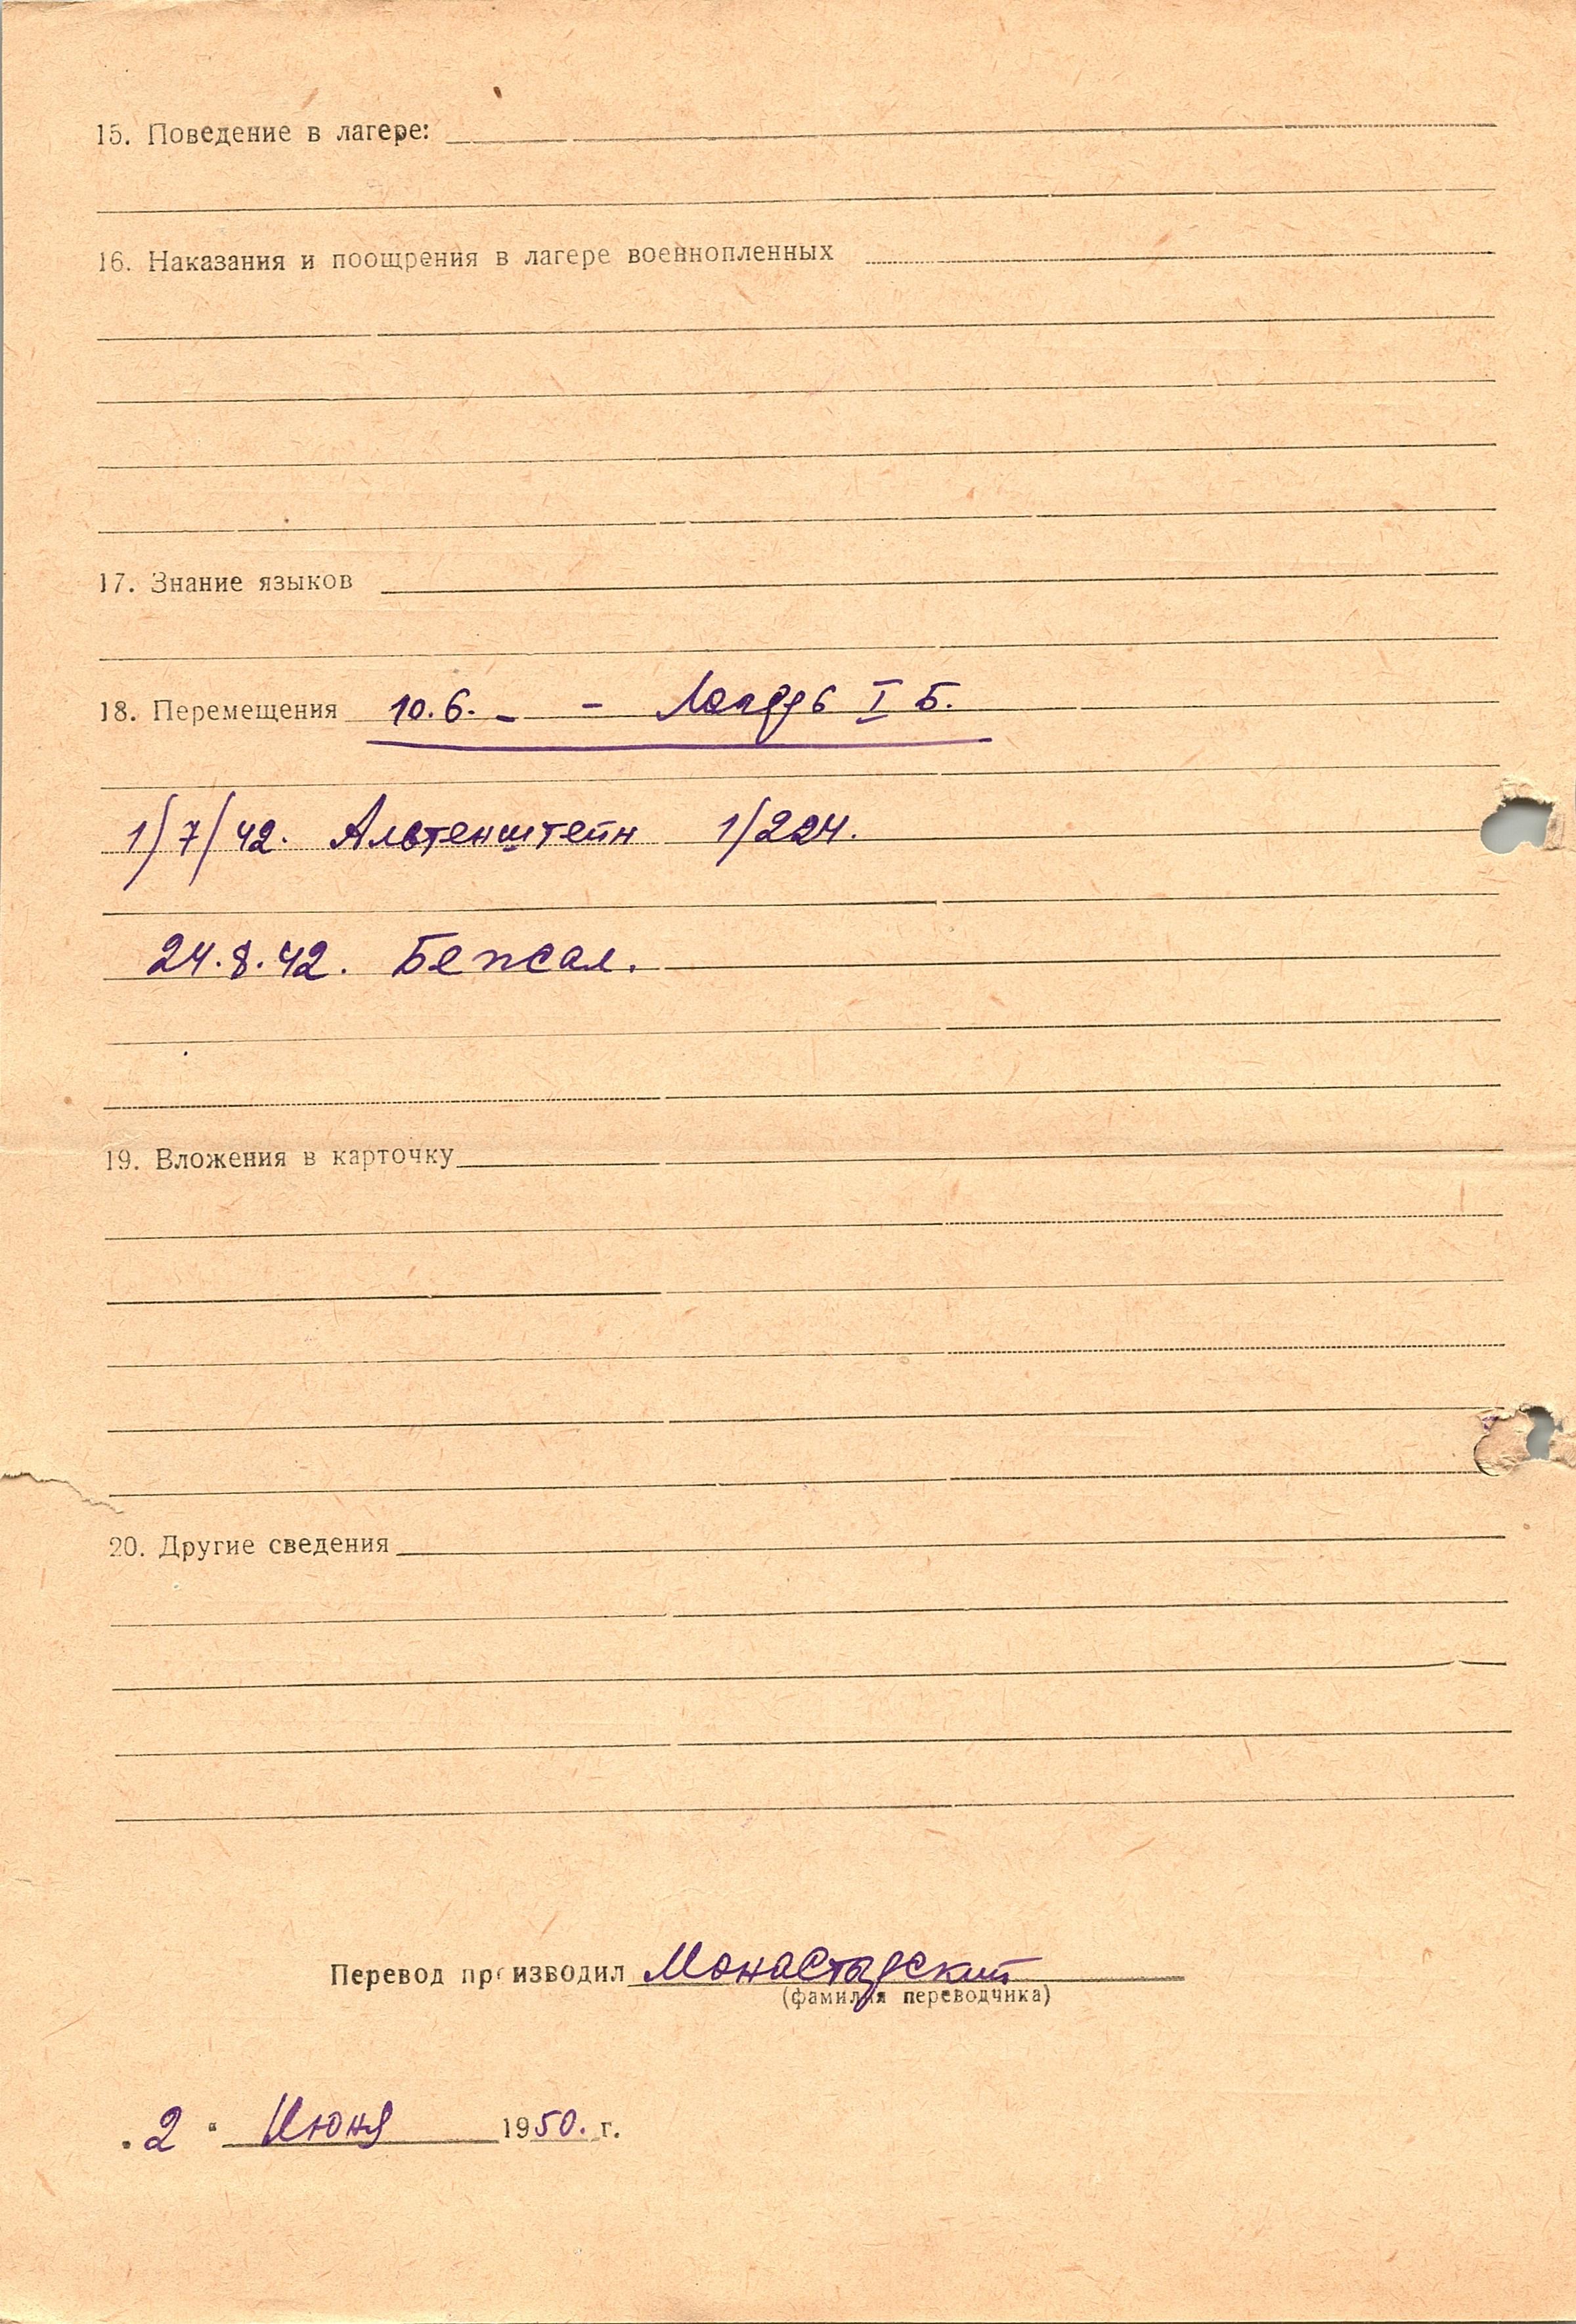 15. Поведение в лагере:
16. Наказания и поощрения в лагере военнопленных
17. Знание языков
18. Перемещения 10.6. - - I Б.
1/7/42. Альтенштейн 1/224.
24.8.42. Бежал.
19. Вложения в карточку
20. Другие сведения
Перевод производил Монастырский
(фамилия переводчика)
"2" Июня 1950. г.